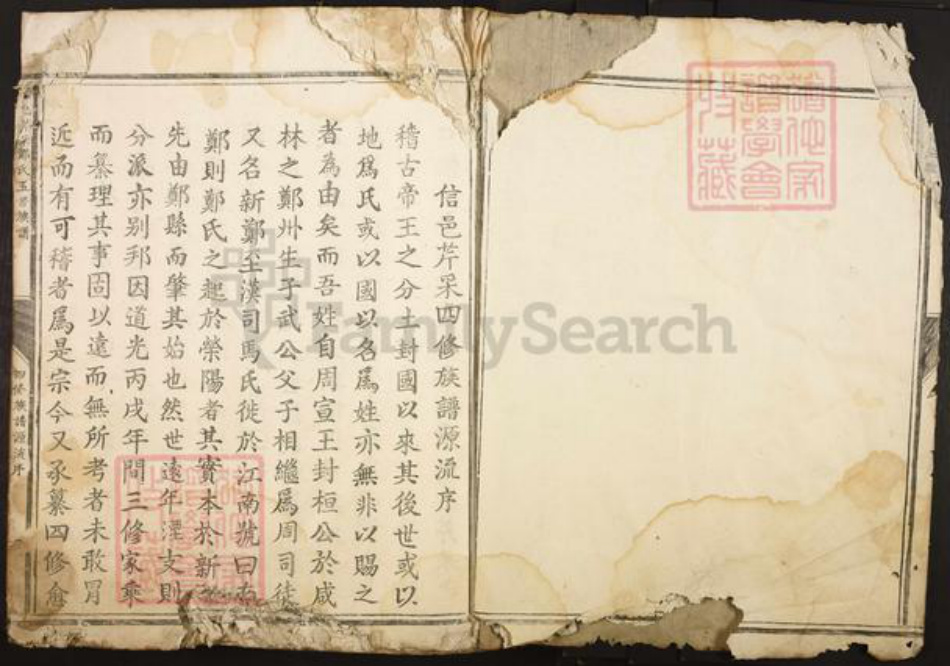 信邑芹采四修族譜源流序
稽古帝王之分土封國以來其後世或以
地爲氏或以國以名爲姓亦無非以賜之
者為由矣而吾姓自周宣王封桓公於咸
林之鄭州生子武公父子相繼爲周司徒
又名新鄭至漢司馬氏徙於江南號曰南
鄭則鄭氏之起於滎陽者其實本於新
先由鄭縣而肇其始也然世遠年湮支則
分派亦别邦因道光丙戌年間三修家乘
而纂理其事固以遠而無所考者未敢冐
近而有可稽者爲是宗今又承纂四修俞
氏玉 族譜
四修族譜源流序
藏
FamilySearch